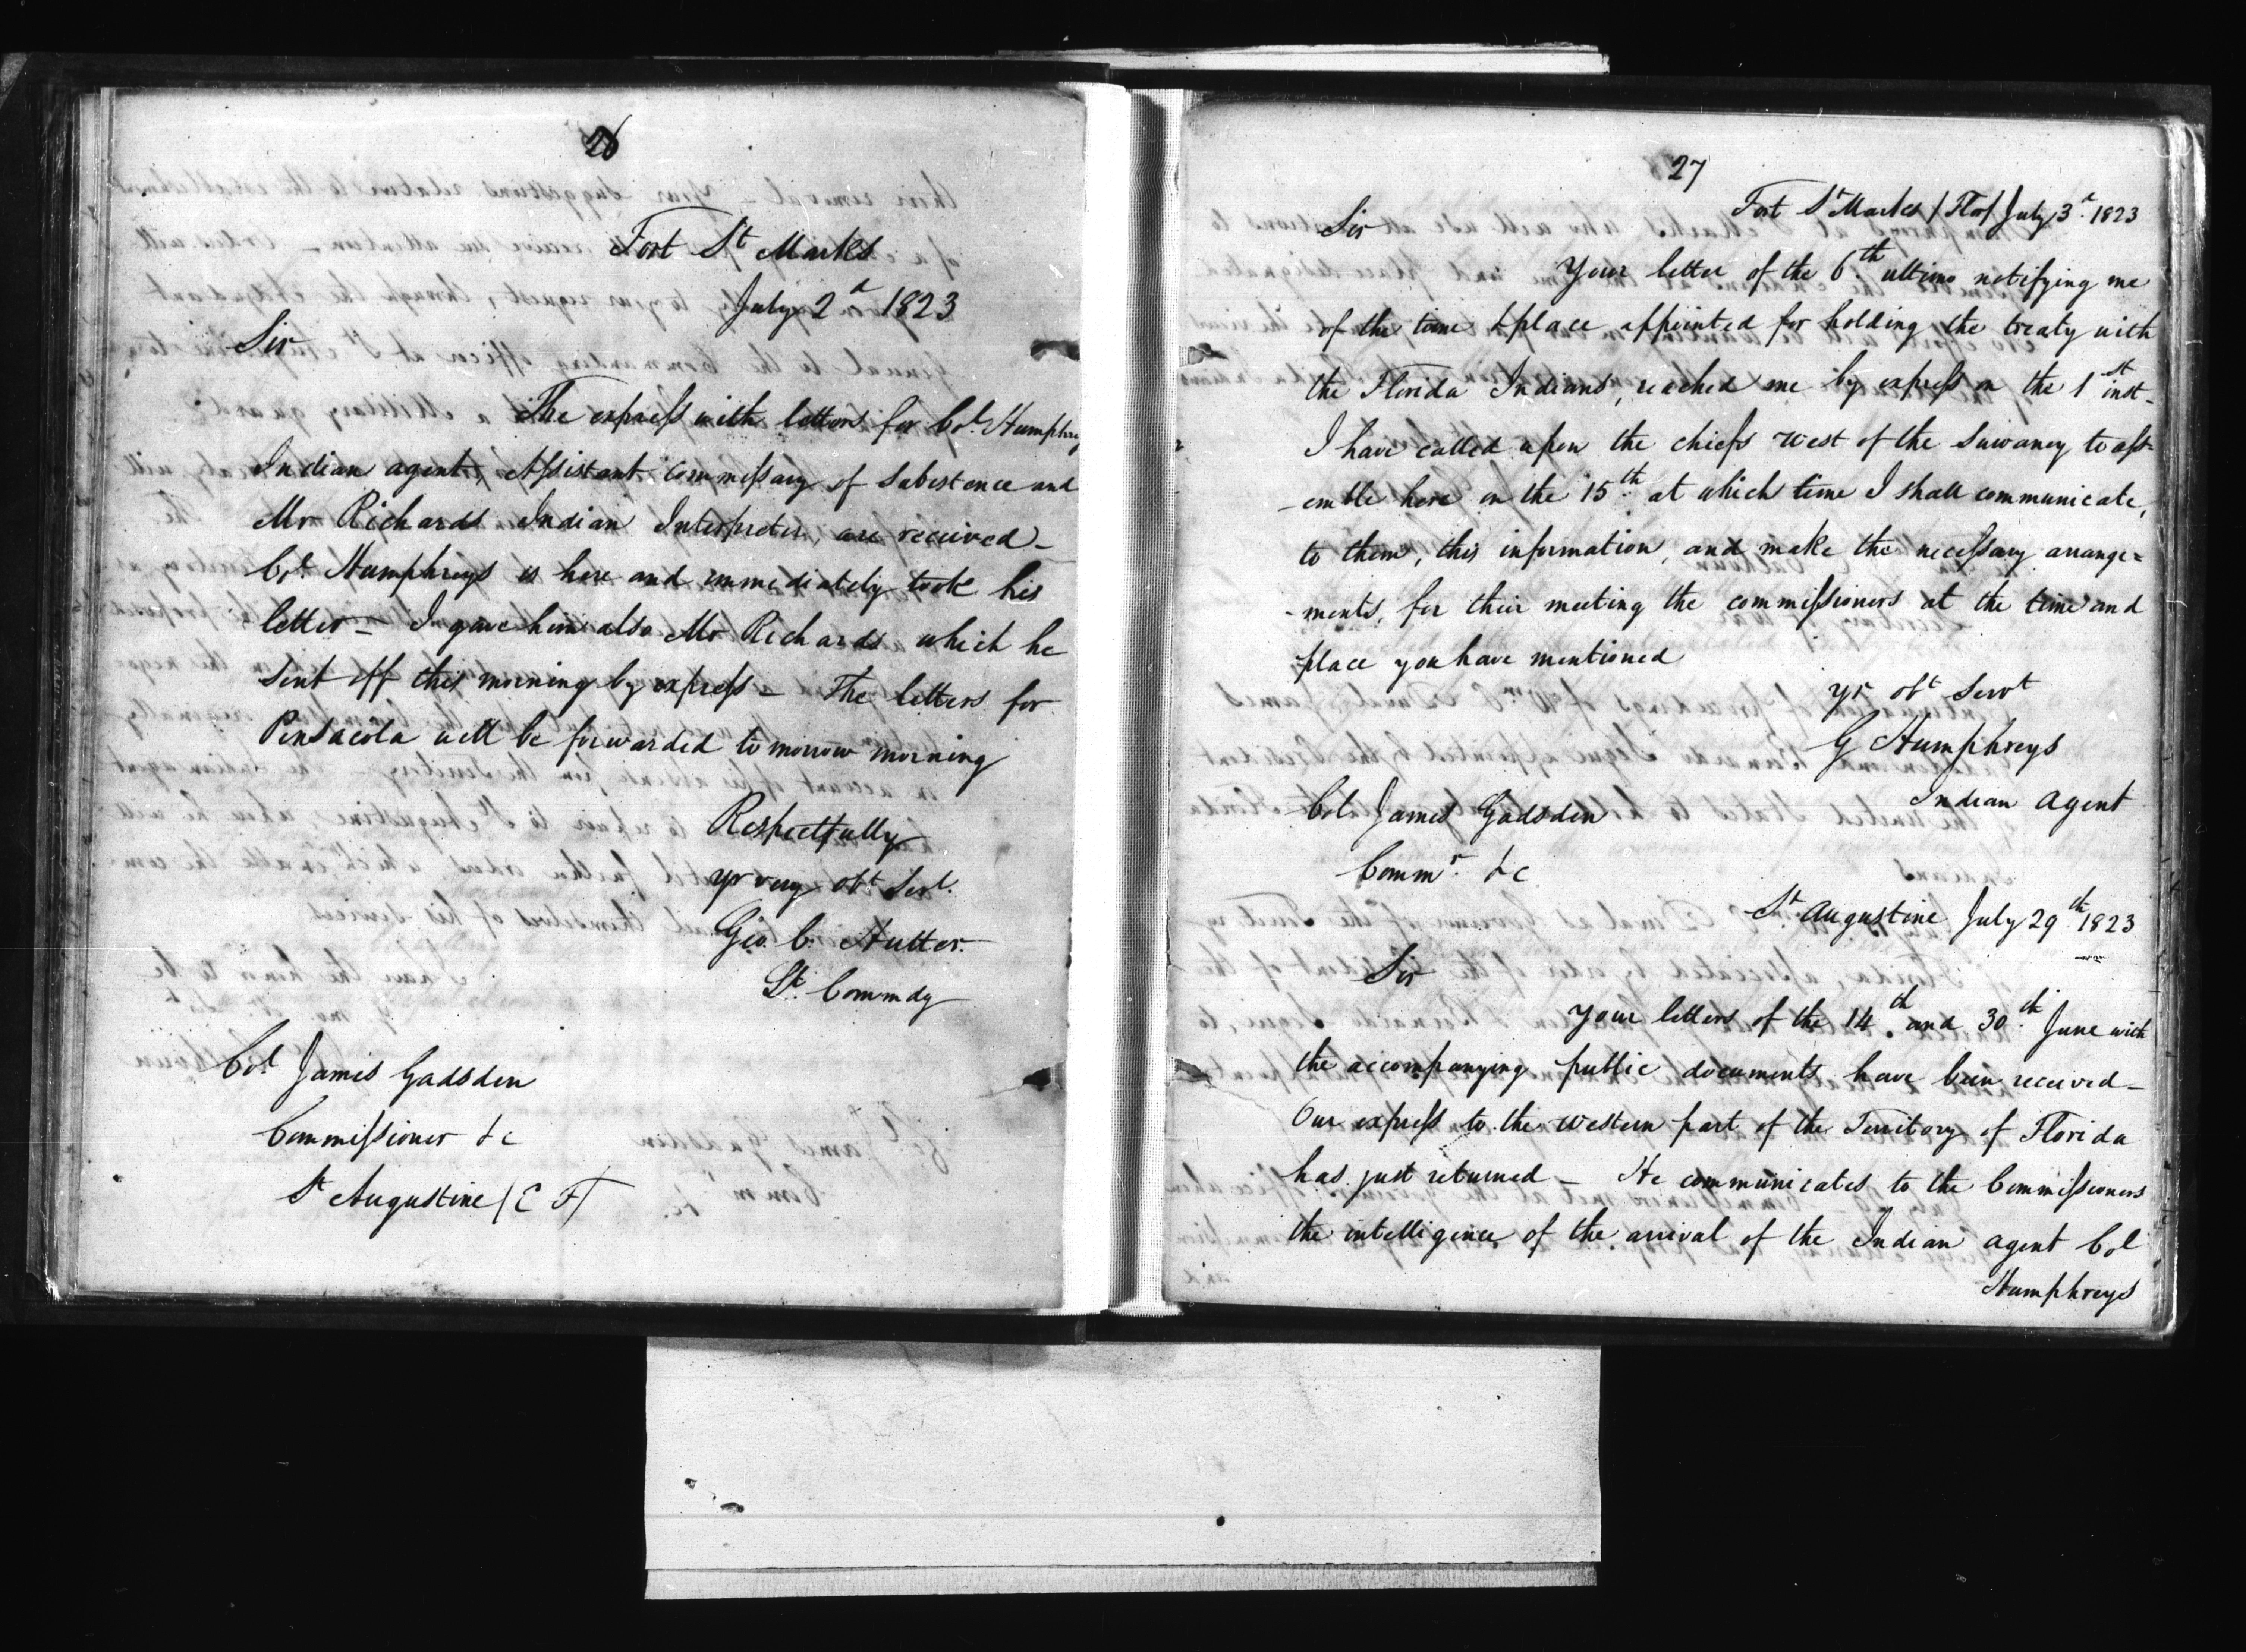 26
Fort St Marks
July 2d 1823
Sir
The express with letters for Col. Humphrey
Indian agent, Assistant commissary of Subistence and
Mr Richards Indian Interpreter, are received—
Col. Humphreys is here and immediately took his
letter— I gave him also Mr Richards which he
sent off this morning by express— The letters for
Pensacola will be forwarded tomorrow morning
Respectfully
yr very obt Servt.
Geo. C. Hutter.
Lt. Commdg
Col. James Gadsden
Commissioner &c
St Augustine (E F)
27
Fort St Marks (Flo) July 3d. 1823
Sir
Your letter of the 6th. ultimo notifying me
of the time & place, appointed for holding the treaty with
the Florida Indians, reached me by express on the 1st inst—
I have called upon the chiefs west of the Suwaney to ass-
-emble here on the 15th. at which time I shall communicate,
to them, this information, and make the necessary arrange=
-ments, for their meeting the commissioners at the time and
place you have mentioned
yr obt Servt
G Humphreys
Indian agent
Col James Gadsden
Commr. &c
St. Augustine July 29th 1823
Sir
Your letters of the 14th. and 30th. June with
the accompanying public documents have been received—
Our express to the western part of the Territory of Florida
has just returned— He communicates to the Commissioners
the intelligence of the arrival of the Indian agent Col
Humphreys